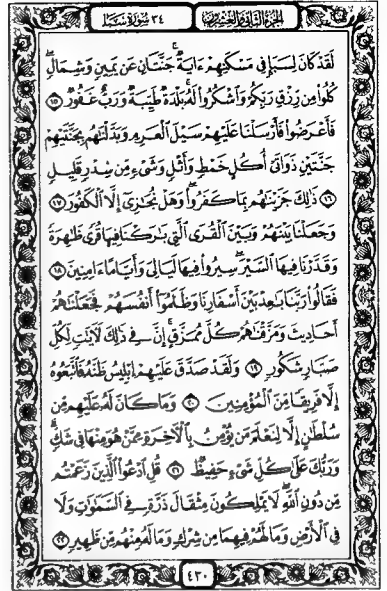 الجزء الثاني والعشرين
٣٤ سورة سبأ
لَقَدْ كَانَ لِسَبَإٍ فِي مَسْكَنِهِمْ ءَايَةٌ ۖ جَنَّتَانِ عَن يَمِينٍ وَشِمَالٍ ۖ
كُلُوا۟ مِن رِّزْقِ رَبِّكُمْ وَٱشْكُرُوا۟ لَهُۥ ۚ بَلْدَةٌ طَيِّبَةٌ وَرَبٌّ غَفُورٌ ١٥
فَأَعْرَضُوا۟ فَأَرْسَلْنَا عَلَيْهِمْ سَيْلَ ٱلْعَرِمِ وَبَدَّلْنَٰهُم بِجَنَّتَيْهِمْ
جَنَّتَيْنِ ذَوَاتَىْ أُكُلٍ خَمْطٍ وَأَثْلٍ وَشَىْءٍ مِّن سِدْرٍ قَلِيلٍ
١٦ ذَٰلِكَ جَزَيْنَٰهُم بِمَا كَفَرُوا۟ ۖ وَهَلْ نُجَٰزِىٓ إِلَّا ٱلْكَفُورَ ١٧
وَجَعَلْنَا بَيْنَهُمْ وَبَيْنَ ٱلْقُرَى ٱلَّتِى بَٰرَكْنَا فِيهَا قُرًى ظَٰهِرَةً
وَقَدَّرْنَا فِيهَا ٱلسَّيْرَ ۖ سِيرُوا۟ فِيهَا لَيَالِىَ وَأَيَّامًا ءَامِنِينَ ١٨
فَقَالُوا۟ رَبَّنَا بَٰعِدْ بَيْنَ أَسْفَارِنَا وَظَلَمُوٓا۟ أَنفُسَهُمْ فَجَعَلْنَٰهُمْ
أَحَادِيثَ وَمَزَّقْنَٰهُمْ كُلَّ مُمَزَّقٍ ۚ إِنَّ فِى ذَٰلِكَ لَءَايَٰتٍ لِّكُلِّ
صَبَّارٍ شَكُورٍ ١٩ وَلَقَدْ صَدَّقَ عَلَيْهِمْ إِبْلِيسُ ظَنَّهُۥ فَٱتَّبَعُوهُ
إِلَّا فَرِيقًا مِّنَ ٱلْمُؤْمِنِينَ ٢٠ وَمَا كَانَ لَهُۥ عَلَيْهِم مِّن
سُلْطَٰنٍ إِلَّا لِنَعْلَمَ مَن يُؤْمِنُ بِٱلْءَاخِرَةِ مِمَّنْ هُوَ مِنْهَا فِى شَكٍّ ۗ
وَرَبُّكَ عَلَىٰ كُلِّ شَىْءٍ حَفِيظٌ ٢١ قُلِ ٱدْعُوا۟ ٱلَّذِينَ زَعَمْتُم
مِّن دُونِ ٱللَّهِ ۖ لَا يَمْلِكُونَ مِثْقَالَ ذَرَّةٍ فِى ٱلسَّمَٰوَٰتِ وَلَا
فِى ٱلْأَرْضِ وَمَا لَهُمْ فِيهِمَا مِن شِرْكٍ وَمَا لَهُۥ مِنْهُم مِّن ظَهِيرٍ ٢٢
٤٣٠